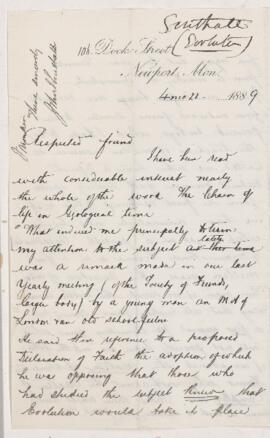 Southall
(Evolution)
108, Dock Street
Newport, Mon.
4 mo 22 1889
I remain
Thine sincerely
Respected friend
I have been read
with considerable interest nearly
the whole of the work The Chain of
life in Geological time
What induced me principally to turn
my attention to the subject lately
was a remark made in our last
Yearly meeting (of the Society of Friends,
large body) by a young man an MA of
London & an old school fellow
He said in reference to a proposed
Declaration of Faith the adoption of which
he was opposing that those who
had studied the subject knew that
Evolution would take its place